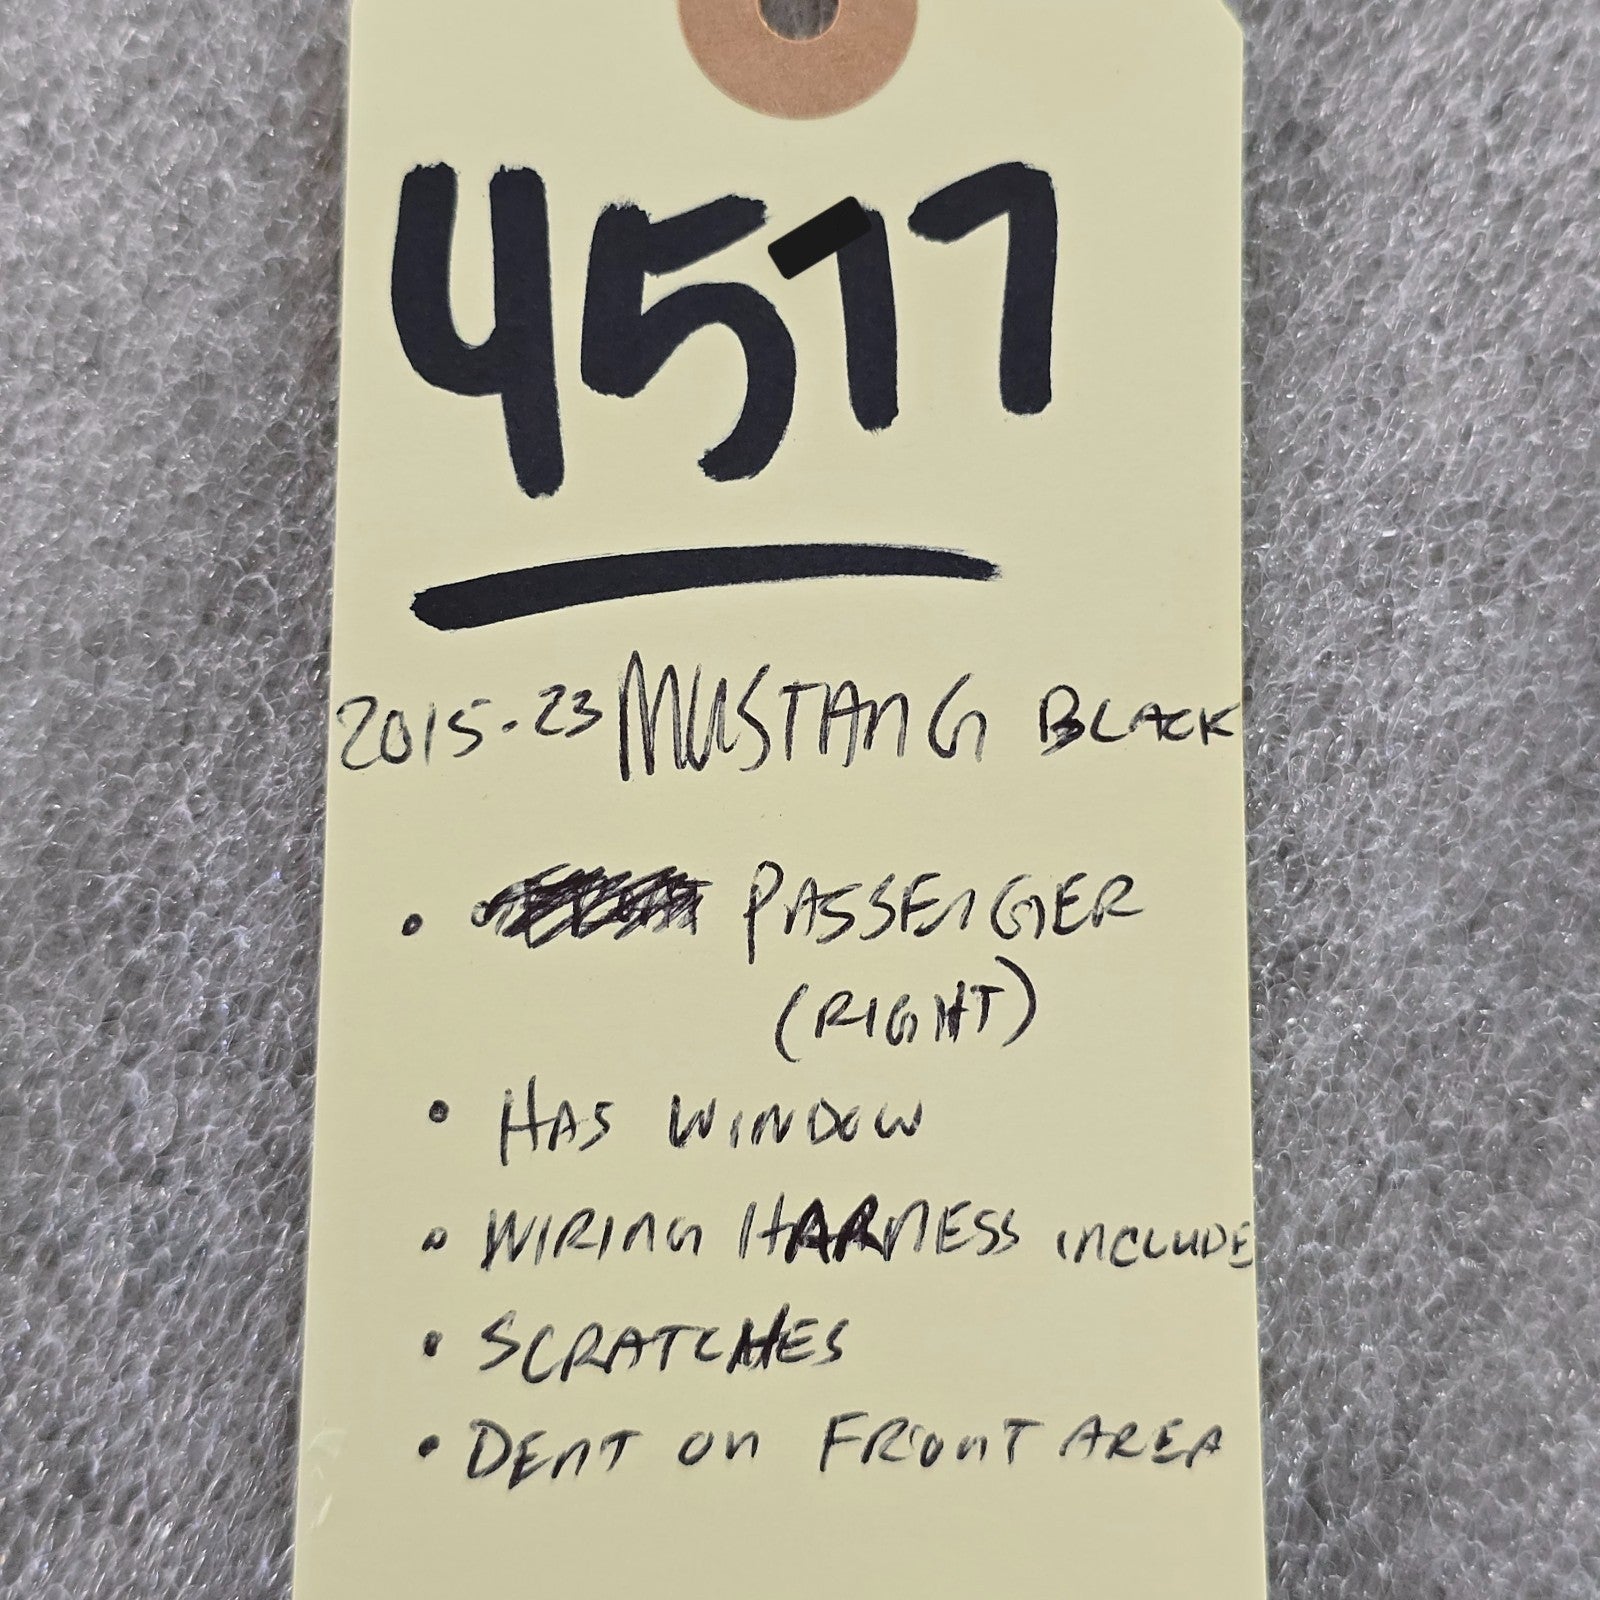 4577
2015-23 MUSTANG BLACK
• PASSENGER
(RIGHT)
• HAS WINDOW
• WIRING HARNESS INCLUDE
• SCRATCHES
• DENT ON FRONT AREA